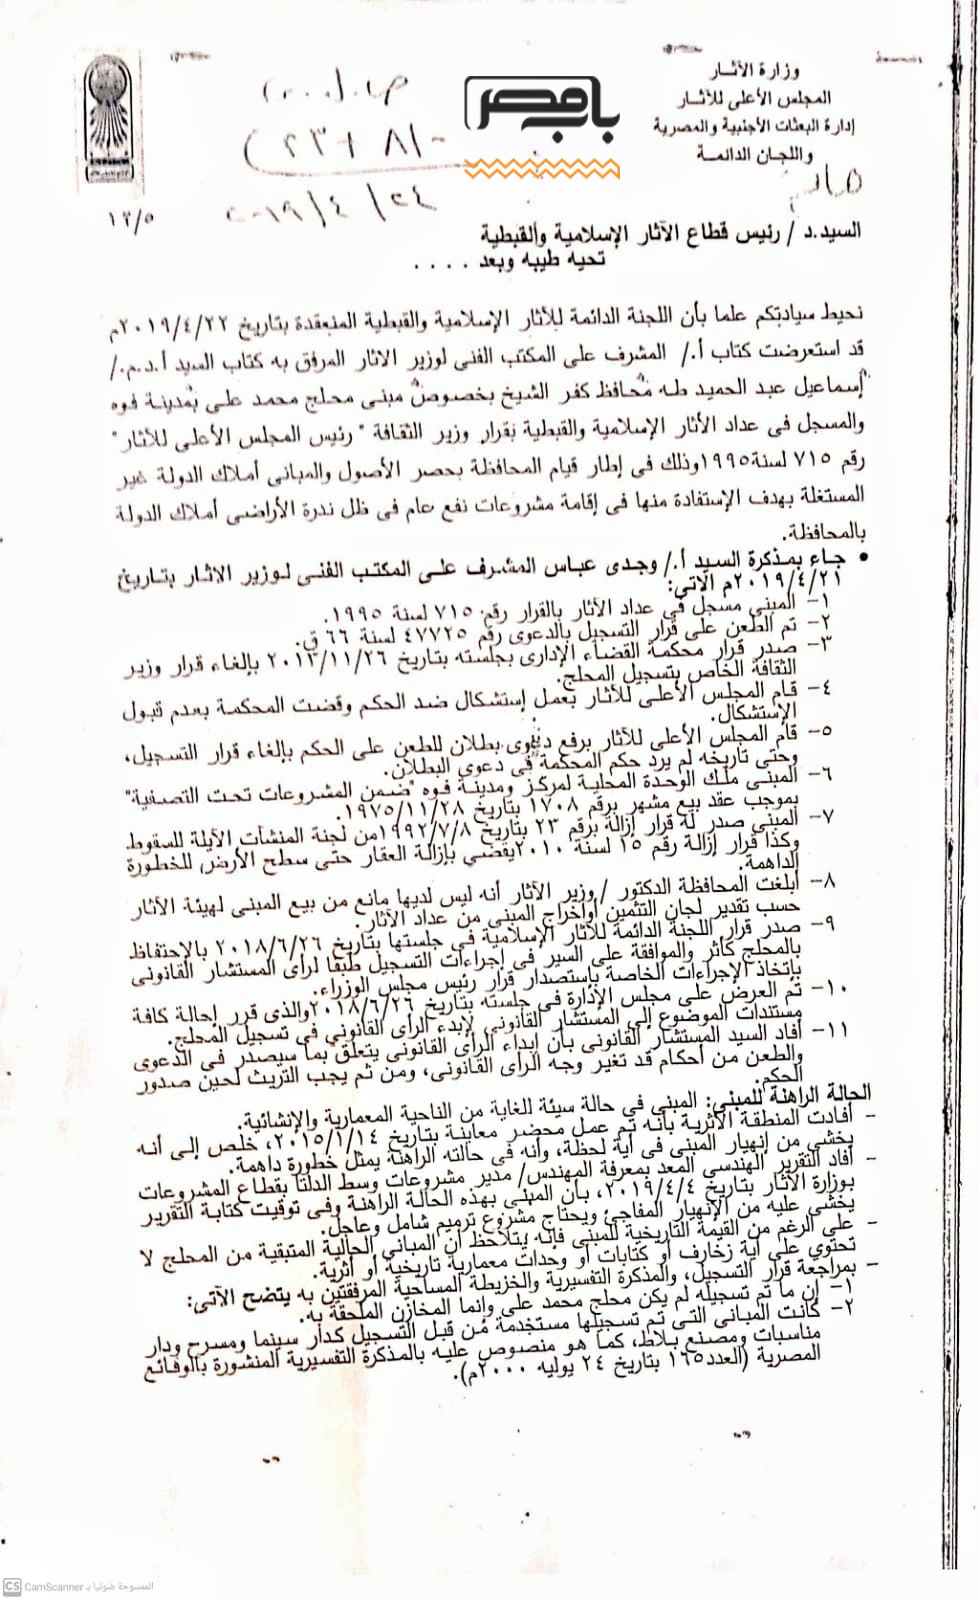 وزارة الآثار
المجلس الأعلى للآثار
إدارة البعثات الأجنبية والمصرية
واللجان الدائمة
باب مصر
٢٤/٤/٢٠١٩
١٣/٥
السيد.د / رئيس قطاع الآثار الإسلامية والقبطية
تحيه طيبه وبعد ....
نحيط سيادتكم علما بأن اللجنة الدائمة للآثار الإسلامية والقبطية المنعقدة بتاريخ ٢٠١٩/٤/٢٢م
قد استعرضت كتاب أ./ المشرف على المكتب الفنى لوزير الاثار المرفق به كتاب السيد أ.د.م./
إسماعيل عبد الحميد طه محافظ كفر الشيخ بخصوص مبنى محلج محمد على بمدينة فوه
والمسجل فى عداد الأثار الإسلامية والقبطية بقرار وزير الثقافة " رئيس المجلس الأعلى للآثار"
رقم ٧١٥ لسنة ١٩٩٥وذلك فى إطار قيام المحافظة بحصر الأصول والمبانى أملاك الدولة غير
المستغلة بهدف الإستفادة منها فى إقامة مشروعات نفع عام فى ظل ندرة الأراضى أملاك الدولة
بالمحافظة.
• جاء بمذكرة السيد أ./ وجدى عباس المشرف على المكتب الفنى لوزير الاثار بتاريخ
٢٠١٩/٤/٢١م الآتى:
١- المبنى مسجل فى عداد الآثار بالقرار رقم ٧١٥ لسنة ١٩٩٥.
٢- تم الطعن على قرار التسجيل بالدعوى رقم ٤٧٧٢٥ لسنة ٦٦ ق.
٣- صدر قرار محكمة القضاء الإدارى بجلسته بتاريخ ٢٠١٣/١١/٢٦ بإلغاء قرار وزير
الثقافة الخاص بتسجيل المحلج.
٤- قام المجلس الأعلى للآثار بعمل إستشكال ضد الحكم وقضت المحكمة بعدم قبول
الإستشكال.
٥- قام المجلس الأعلى للآثار برفع دعوى بطلان للطعن على الحكم بإلغاء قرار التسجيل،
وحتى تاريخه لم يرد حكم المحكمة فى دعوى البطلان.
٦- المبنى ملك الوحدة المحلية لمركز ومدينة فوه "ضمن المشروعات تحت التصفية"
بموجب عقد بيع مشهر برقم ١٧٠٨ بتاريخ ١٩٧٥/١١/٢٨.
٧- المبنى صدر له قرار إزالة برقم ٢٣ بتاريخ ١٩٩٢/٧/٨من لجنة المنشآت الآيلة للسقوط
وكذا قرار إزالة رقم ١٥ لسنة ٢٠١٠يقضي بإزالة العقار حتى سطح الأرض للخطورة
الداهمة.
٨- أبلغت المحافظة الدكتور /وزير الآثار أنه ليس لديها مانع من بيع المبنى لهيئة الآثار
حسب تقدير لجان التثمين أوإخراج المبنى من عداد الآثار.
٩- صدر قرار اللجنة الدائمة للآثار الإسلامية فى جلستها بتاريخ ٢٠١٨/٦/٢٦ بالإحتفاظ
بالمحلج كأثر والموافقة على السير فى إجراءات التسجيل طبقا لرأى المستشار القانونى
بإتخاذ الإجراءات الخاصة بإستصدار قرار رئيس مجلس الوزراء.
١٠- تم العرض على مجلس الإدارة فى جلسته بتاريخ ٢٠١٨/٦/٢٦والذى قرر إحالة كافة
مستندات الموضوع إلى المستشار القانونى لإبدء الرأى القانوني في تسجيل المحلج.
١١- أفاد السيد المستشار القانونى بأن إبداء الرأى القانونى يتعلق بما سيصدر فى الدعوى
والطعن من أحكام قد تغير وجه الرأى القانونى، ومن ثم يجب التريث لحين صدور
الحكم.
الحالة الراهنة للمبنى: المبنى فى حالة سيئة للغاية من الناحية المعمارية والإنشائية.
- أفادت المنطقة الأثرية بأنه تم عمل محضر معاينة بتاريخ ٢٠١٥/١/١٤، خلص إلى أنه
يخشى من إنهيار المبنى فى أية لحظة، وأنه فى حالته الراهنة يمثل خطورة داهمة.
- أفاد التقرير الهندسى المعد بمعرفة المهندس/ مدير مشروعات وسط الدلتا بقطاع المشروعات
بوزارة الآثار بتاريخ ٢٠١٩/٤/٤، بأن المبنى بهذه الحالة الراهنة وفى توقيت كتابة التقرير
يخشى عليه من الإنهيار المفاجئ ويحتاج مشروع ترميم شامل وعاجل.
- على الرغم من القيمة التاريخية للمبنى فإنه يتلاحظ أن المبانى الحالية المتبقية من المحلج لا
تحتوي على أية زخارف أو كتابات أو وحدات معمارية تاريخية أو أثرية.
- بمراجعة قرار التسجيل، والمذكرة التفسيرية والخريطة المساحية المرفقتين به يتضح الآتى:
١- إن ما تم تسجيله لم يكن محلج محمد على وإنما المخازن الملحقة به.
٢- كانت المبانى التى تم تسجيلها مستخدمة من قبل التسجيل كدار سينما ومسرح ودار
مناسبات ومصنع بلاط، كما هو منصوص عليه بالمذكرة التفسيرية المنشورة بالوقائع
المصرية (العدد١٦٥ بتاريخ ٢٤ يوليه ٢٠٠٠م).
CS CamScanner الممسوحة ضوئيا بـ